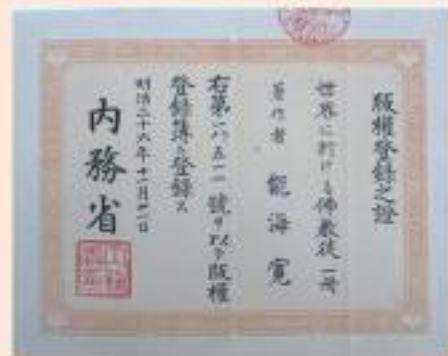 版權登録之證
世界に於ける佛教徒 一冊
著作者 能海寛
右第一六五一二號ヲ以テ版權
登録簿ニ登録ス
明治二十六年十二月廿一日
内務省